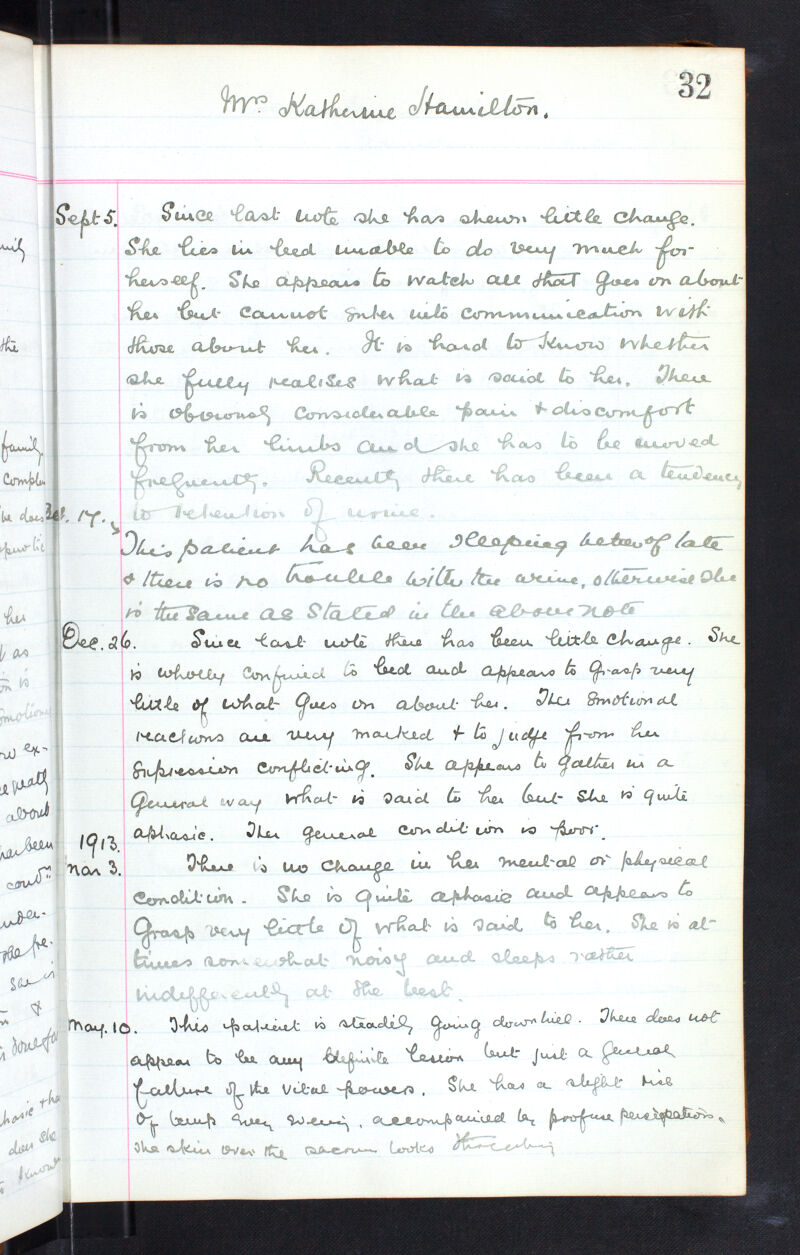 32
Mrs Katherine Hamilton.
Sept 5. Since last note she has shewn little change.
She lies in bed unable to do very much for
herself. She appears to watch all that goes on about
her but cannot enter into communication with
those about her. It is hard to know whether
she fully realises what is said to her. There
is obviously considerable pain & discomfort
from her limbs and she has to be moved
frequently. Recently there has been a tendency
to retention of urine.
Oct. 17. This patient has been sleeping better of late
& there is no trouble with the urine, otherwise she
is the same as stated in the above note
Dec. 26. Since last note there has been little change. She
is wholly confined to bed and appears to grasp very
little of what goes on about her. Her emotional
reactions are very marked & to judge from her
expression conflicting. She appears to gather in a
general way what is said to her but she is quite
aphasic. Her general condition is poor.
1913.
Mar 3. There is no change in her mental or physical
condition. She is quite aphasic and appears to
grasp very little of what is said to her. She is at
times somewhat noisy and sleeps rather
indifferently at the best.
May. 10. This patient is steadily going downhill. There does not
appear to be any definite lesion but just a general
failure of the vital powers. She has a slight rise
of temp every evening, accompanied by profuse perspiration.
The skin over the sacrum looks threatening
the
family.
comple
he does
her
as
is
emotion
ex-
about
has been
condn
under-
She is
&
is done for
does she
know